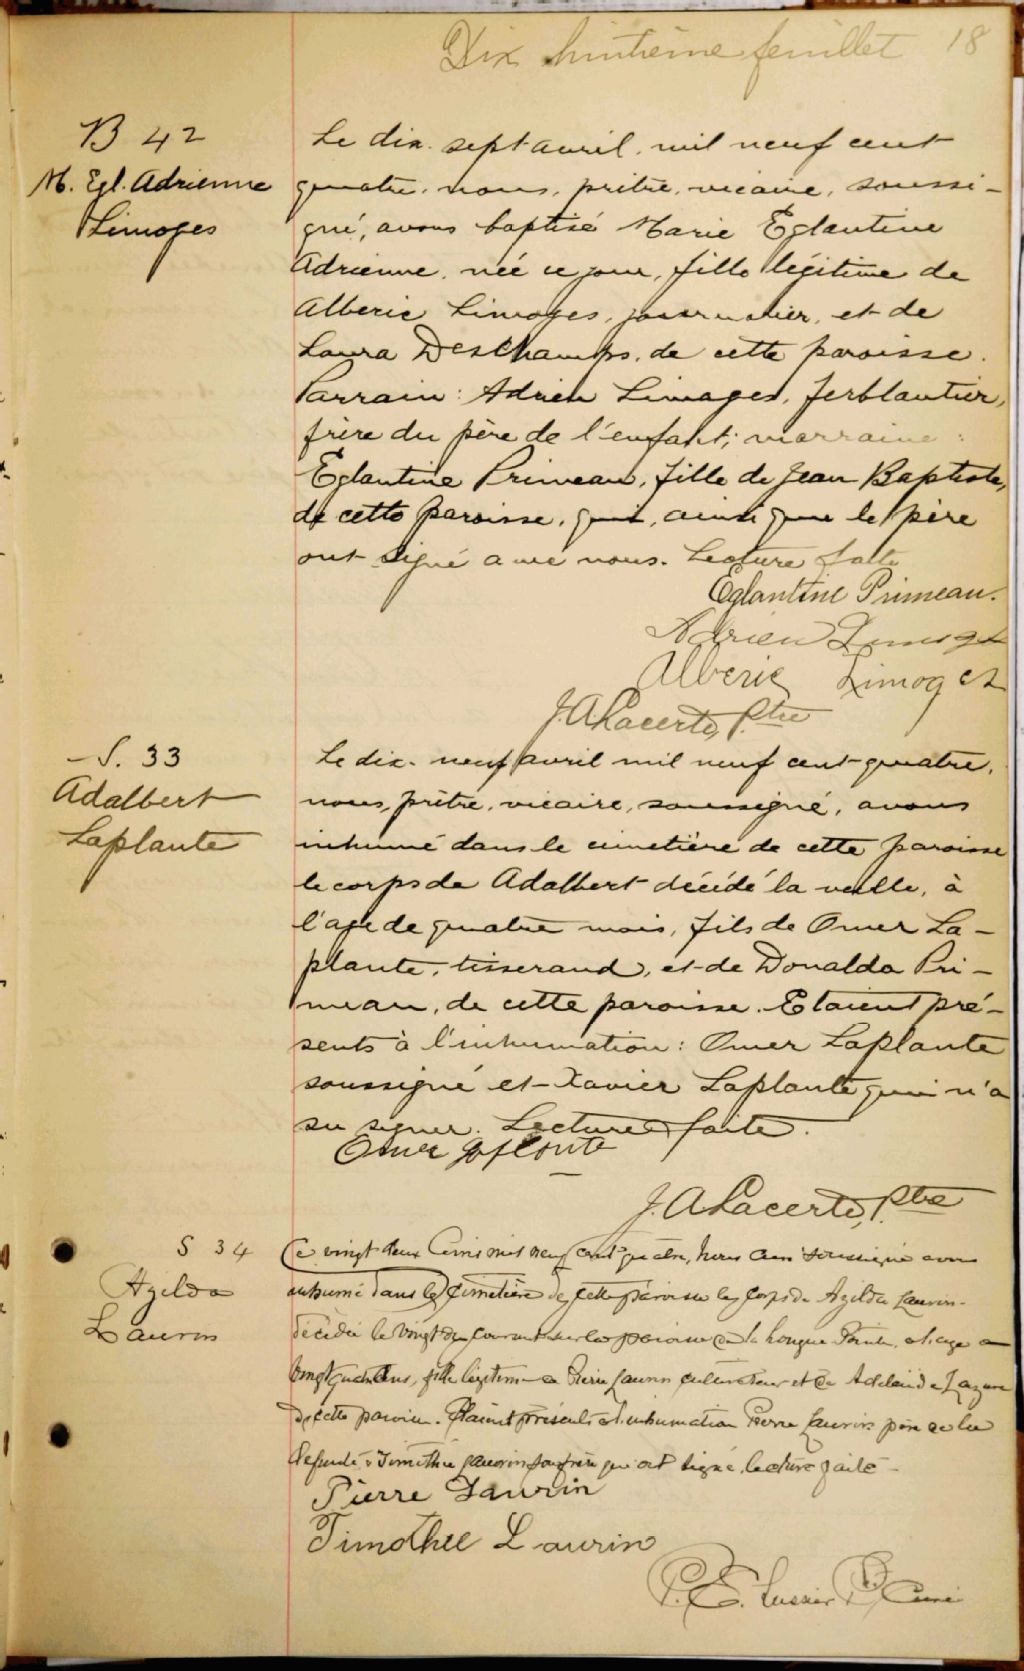 Dix huitième feuillet 18
B 42
M. Egl. Adrienne
Limoges
Le dix. sept avril. mil neuf cent
quatre. nous, prêtre, vicaire, soussi-
gné, avons baptisé Marie Eglantine
Adrienne, née ce jour, fille légitime de
Alberic Limoges, journalier, et de
Laura Deschamps, de cette paroisse.
Parrain: Adrien Limoges, ferblantier,
frère du père de l'enfant; marraine:
Eglantine Primeau, fille de Jean Baptiste,
de cette paroisse, qui, ainsi que le père
ont signé avec nous. Lecture faite
Eglantine Primeau.
Adrien Limoges
Alberic Limoges
J.A Lacerte, Ptre
S. 33
Adalbert
Laplante
Le dix-neuf avril mil neuf cent quatre,
nous, prêtre, vicaire, soussigné, avons
inhumé dans le cimetière de cette paroisse
le corps de Adalbert décédé la veille, à
l'age de quatre mois, fils de Omer La-
plante, tisserand, et de Donalda Pri-
meau, de cette paroisse. Etaient pré-
sents à l'inhumation: Omer Laplante
soussigné et Xavier Laplante qui n'a
su signer. Lecture faite.
Omer Laplante
J.A Lacerte, Ptre
S 34
Azilda
Laurin
Ce vingt deux mil neuf cent quatre, Nous Curé soussigné avons
inhumé dans le Cimetière de cette paroisse le corps de Azilda Laurin
décédée le vingt du courant sur la paroisse de la Longue Pointe, à l'age de
vingt quatre ans, fille légitime de Pierre Laurin cultivateur et de Adelaide Lazure
de cette paroisse. Etaient présents à l'inhumation Pierre Laurin père de la
défunte & Timothée Laurin son frère qui ont signé. lecture faite
Pierre Laurin
Timothée Laurin
P.E. Lussier Ptre Curé